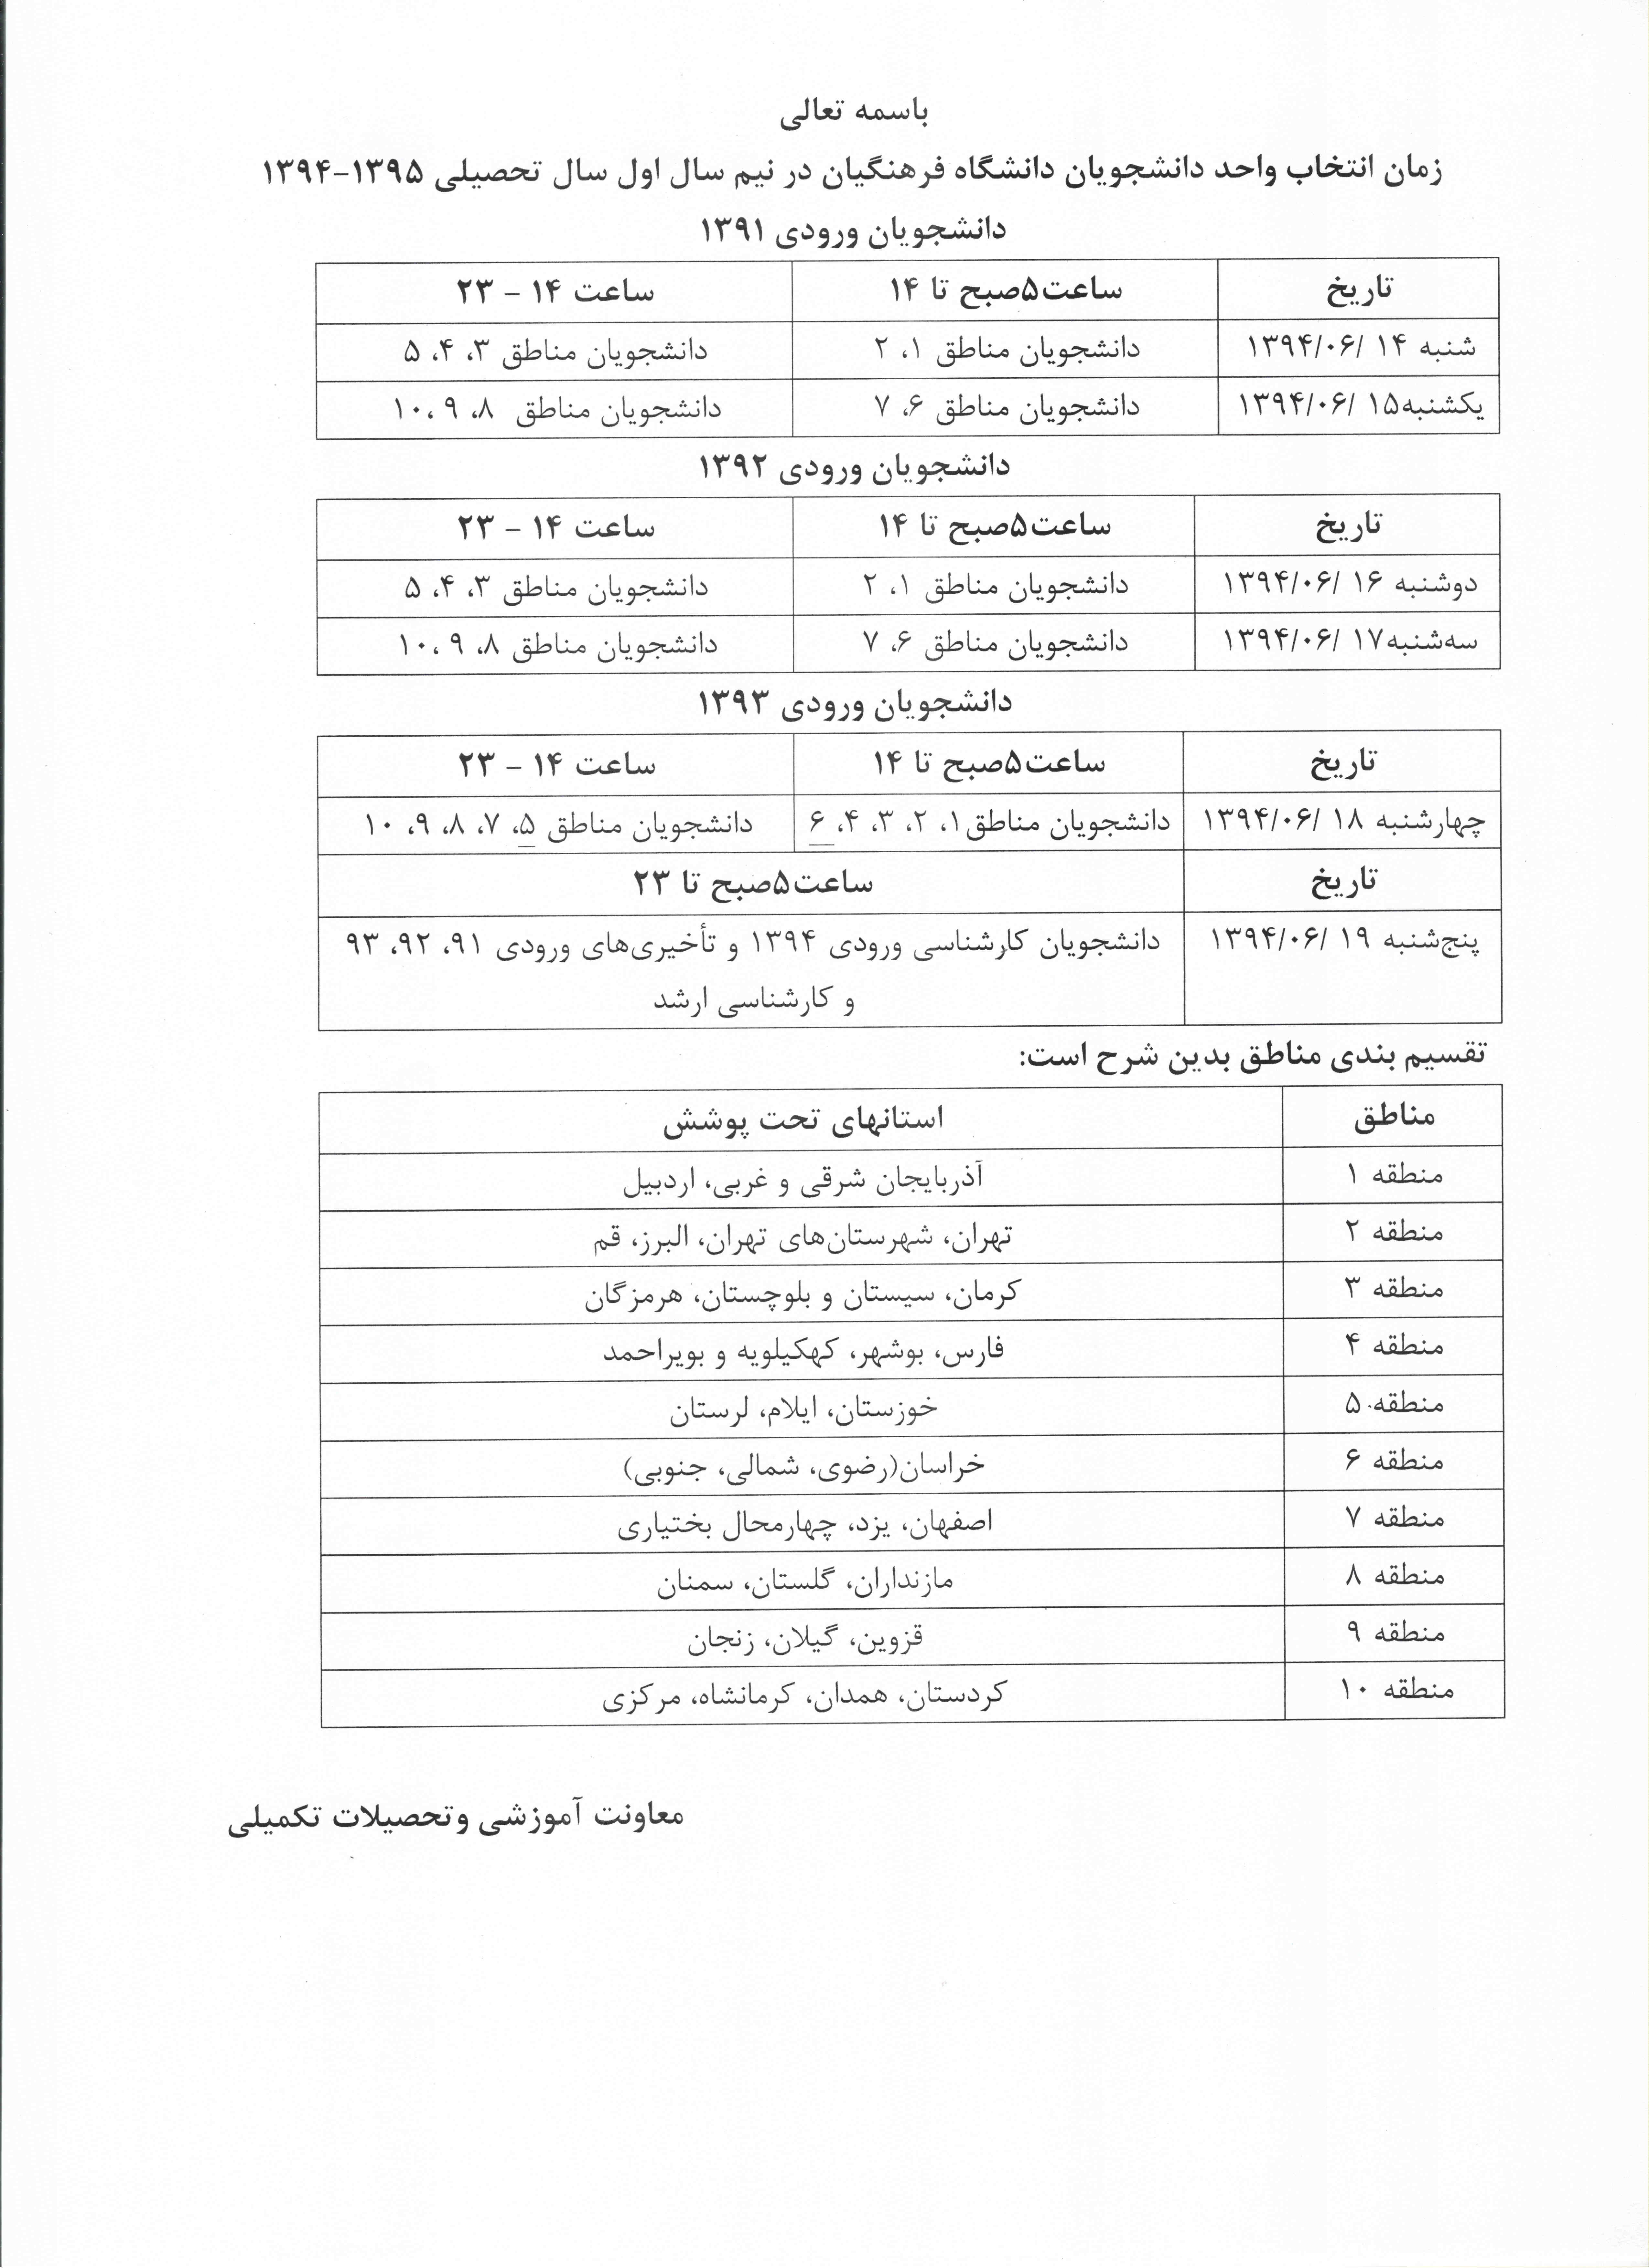 باسمه تعالی
زمان انتخاب واحد دانشجویان دانشگاه فرهنگیان در نیم سال اول سال تحصیلی ۱۳۹۵-۱۳۹۴
دانشجویان ورودی ۱۳۹۱
تاریخ ساعت۵صبح تا ۱۴ ساعت ۱۴ - ۲۳
شنبه ۱۴ /۱۳۹۴/۰۶ دانشجویان مناطق ۱، ۲ دانشجویان مناطق ۳، ۴، ۵
یکشنبه۱۵ /۱۳۹۴/۰۶ دانشجویان مناطق ۶، ۷ دانشجویان مناطق ۸، ۹ ،۱۰
دانشجویان ورودی ۱۳۹۲
تاریخ ساعت۵صبح تا ۱۴ ساعت ۱۴ - ۲۳
دوشنبه ۱۶ /۱۳۹۴/۰۶ دانشجویان مناطق ۱، ۲ دانشجویان مناطق ۳، ۴، ۵
سه‌شنبه۱۷ /۱۳۹۴/۰۶ دانشجویان مناطق ۶، ۷ دانشجویان مناطق ۸، ۹ ،۱۰
دانشجویان ورودی ۱۳۹۳
تاریخ ساعت۵صبح تا ۱۴ ساعت ۱۴ - ۲۳
چهارشنبه ۱۸ /۱۳۹۴/۰۶ دانشجویان مناطق۱، ۲، ۳، ۴، ۶ دانشجویان مناطق ۵، ۷، ۸، ۹، ۱۰
تاریخ ساعت۵صبح تا ۲۳
پنج‌شنبه ۱۹ /۱۳۹۴/۰۶ دانشجویان کارشناسی ورودی ۱۳۹۴ و تأخیری‌های ورودی ۹۱، ۹۲، ۹۳
و کارشناسی ارشد
تقسیم بندی مناطق بدین شرح است:
مناطق استانهای تحت پوشش
منطقه ۱ آذربایجان شرقی و غربی، اردبیل
منطقه ۲ تهران، شهرستان‌های تهران، البرز، قم
منطقه ۳ کرمان، سیستان و بلوچستان، هرمزگان
منطقه ۴ فارس، بوشهر، کهکیلویه و بویراحمد
منطقه ۵ خوزستان، ایلام، لرستان
منطقه ۶ خراسان(رضوی، شمالی، جنوبی)
منطقه ۷ اصفهان، یزد، چهارمحال بختیاری
منطقه ۸ مازنداران، گلستان، سمنان
منطقه ۹ قزوین، گیلان، زنجان
منطقه ۱۰ کردستان، همدان، کرمانشاه، مرکزی
معاونت آموزشی وتحصیلات تکمیلی